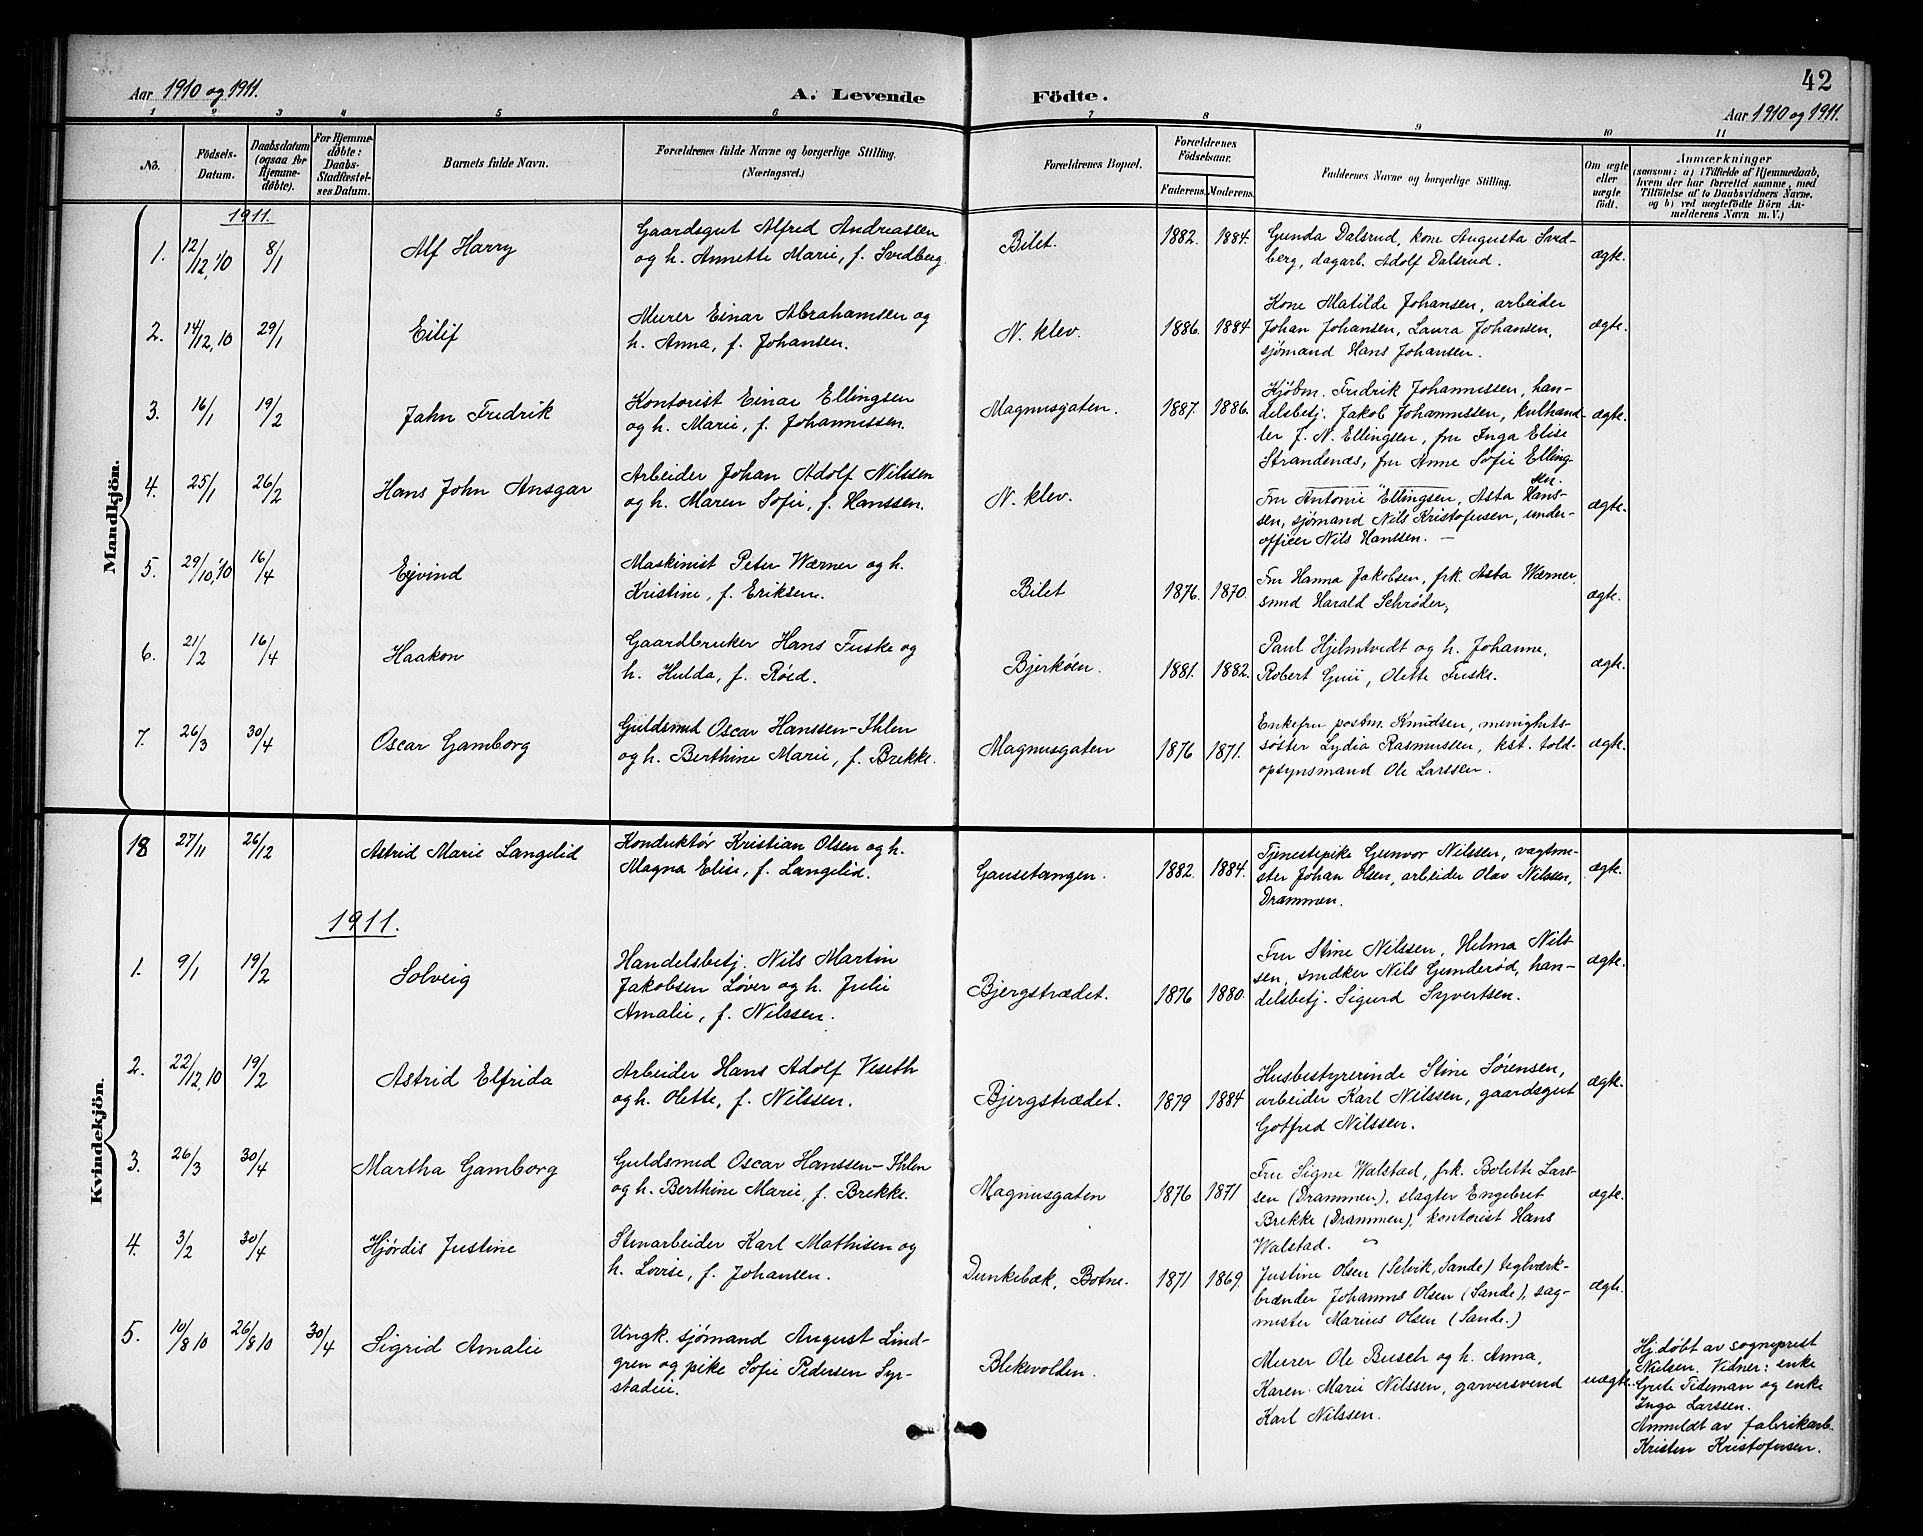 42
Aar 1910 og 1911.
A. Levende Födte.
Aar 1910 og 1911.
1 2 3 4 5 6 7 8 9 10 11
No.
Födsels-
Datum.
Daabsdatum
(ogsaa for
Hjemme-
døbte).
For Hjemme-
døbte:
Daabs-
Stadfæstel-
ses Datum.
Barnets fulde Navn.
Forældrenes fulde Navne og borgerlige Stilling.
(Næringsvei.)
Forældrenes Bopæl.
Forældrenes
Födselsaar.
Faderens. Moderens.
Faddernes Navne og borgerlige Stilling.
Om ægte
eller
uægte
födt.
Anmærkninger
(saasom: a) i Tilfælde af Hjemmedaab,
hvem der har forrettet samme, med
Tilföielse af to Daabsvidners Navne.
og b) ved uægtefödte Börn An-
melderens Navn m. V.)
Mandkjön.
1911.
1. 12/12,'10 8/1 Alf Harry
Gaardsgut Alfred Andreassen
og h. Annette Marie, f. Svedberg.
Bilet. 1882. 1884.
Gunda Dalsrud, kone Augusta Sved-
berg, dagarb. Adolf Dalsrud.
ægte.
2. 14/12,10 29/1 Eilif
Murer Einar Abrahamsen og
h. Anna, f. Johansen.
N. klev. 1886. 1884
Kone Matilde Johansen, arbeider
Johan Johansen, Laura Johansen,
sjømand Hans Johansen.
ægte.
3. 16/1 19/2 Jahn Fredrik
Kontorist Einar Ellingsen
og h. Marie, f. Johannessen.
Magnusgaten. 1887. 1886.
Kjøbm. Fredrik Johannessen, han-
delsbetj. Jakob Johannessen, kulhand-
ler J. N. Ellingsen, fru Inga Elise
Strandenæs, fru Anne Sofie Elling-
sen.
ægte.
4. 25/1 26/2 Hans John Ansgar
Arbeider Johan Adolf Nilssen
og h. Maren Sofie, f. Hanssen.
N. klev.
Fru Antonie Ellingsen, Asta Hans-
sen, sjømand Nils Kristofersen, under-
officer Nils Hanssen. —
ægte.
5. 29/10,'10 16/4 Ejvind
Maskinist Peter Wærner og h.
Kristine, f. Eriksen.
Bilet 1876. 1870.
Fru Hanna Jakobsen, frk. Asta Wærner,
smed Harald Schrøder,
ægte.
6. 21/2 16/4 Haakon
Gaardbruker Hans Fuske og
h. Hulda, f. Røed.
Bjerkøen. 1881. 1882.
Paul Hjelmtvedt og h. Johanne,
Robert Guii, Olette Fuske.
ægte.
7. 26/3 30/4 Oscar Gamborg
Guldsmed Oscar Hanssen-Ihlen
og h. Berthine Marie, f. Brekke.
Magnusgaten 1876 1871.
Enkefru postm. Knudsen, menighets-
søster Lydia Rasmussen, kst. told-
opsynsmand Ole Larssen.
ægte.
Kvindekjön.
18 27/11 26/12 Astrid Marie Langelid
Konduktør Kristian Olsen og h.
Magna Elise, f. Langelid.
Gausetangen. 1882. 1884.
Tjenestepike Gunvor Nilssen, vagtme-
ster Johan Olsen, arbeider Olav Nilssen,
Drammen.
ægte.
1911.
1. 9/1 19/2 Solveig
Handelsbetj. Nils Martin
Jakobsen Løver og h. Julie
Amalie, f. Nilssen.
Bjergstrædet. 1876 1880.
Fru Stine Nilssen, Helma Nils-
sen, snedker Nils Gunderød, han-
delsbetj. Sigurd Syvertsen.
ægte.
2. 22/12,10 19/2 Astrid Elfrida
Arbeider Hans Adolf Veseth
og h. Olette, f. Nilssen.
Bjergstrædet. 1879 1884
Husbestyrerinde Stine Sørensen,
arbeider Karl Nilssen, gaardsgut
Gotfred Nilssen.
ægte.
3. 26/3 30/4 Martha Gamborg
Guldsmed Oscar Hanssen-Ihlen
og h. Berthine Marie, f. Brekke.
Magnusgaten 1876 1871
Fru Signe Walstad, frk. Bolette Lars-
sen (Drammen), slagter Engebret
Brekke (Drammen), kontorist Hans
Walstad.
ægte.
4. 3/2 30/4 Hjørdis Justine
Stenarbeider Karl Mathisen og
h. Lovise, f. Johansen.
Dunkebæk, Botne. 1871 1869.
Justine Olsen (Selvik, Sande) teglværk-
brænder Johannes Olsen (Sande), sag-
mester Marius Olsen (Sande.)
ægte.
5. 10/8 10 26/8 10 30/4 Sigrid Amalie
Ungk. sjømand August Lind-
gren og pike Sofie Pedersen Syr-
stadeie.
Blekevolden.
Murer Ole Busch og h. Anna,
Karen Marie Nilssen, garversvend
Karl Nilssen.
uægte.
Hj.døbt av sogneprest
Nielsen. Vidner: enke
Grete Tideman og enke
Inga Larssen.
Anmeldt av fabrikarb.
Kristen Kristofersen.